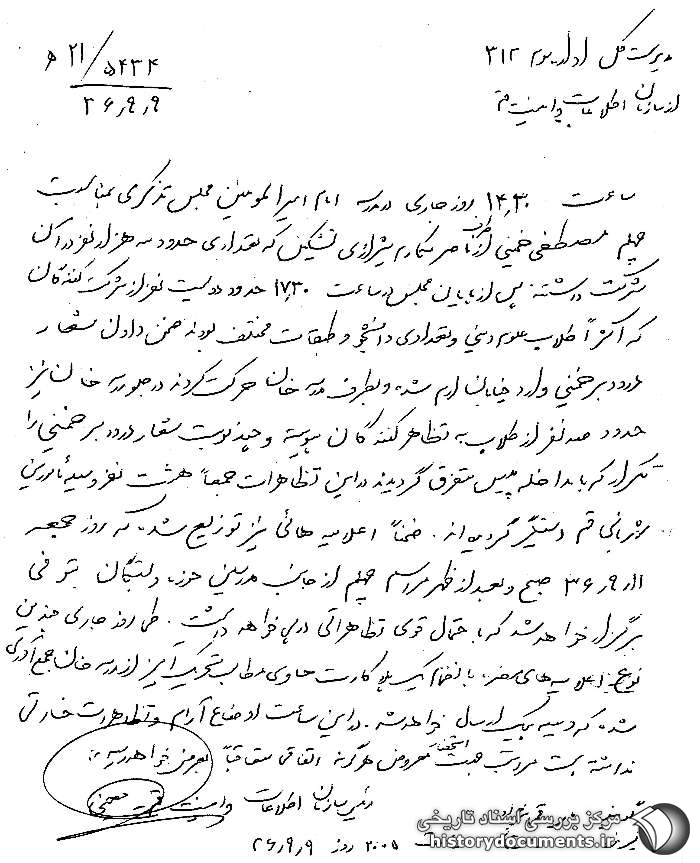 مدیریت کل اداره سوم ۳۱۲
از سازمان اطلاعات و امنیت قم
۲۱/۵۴۳۴ ه
۳۶٫۹٫۹
ساعت ۱۴٫۳۰ روز جاری در مدرسه امام امیرالمومنین مجلس تذکری بمناسبت
چهلم مصطفی خمینی از طرف ناصر مکارم شیرازی تشکیل که تعدادی حدود سه هزار نفر در آن
شرکت داشتند پس از پایان مجلس در ساعت ۱۷٫۳۰ حدود دویست نفر از شرکت کنندگان
که اکثراً طلاب علوم دینی و تعدادی دانشجو و طبقات مختلف بودند ضمن دادن شعار
درود بر خمینی وارد خیابان ارم شده و بطرف مدرسه خان حرکت کردند در جلو مدرسه خان نیز
حدود صد نفر از طلاب به تظاهر کنندگان پیوسته و چند نوبت شعار درود بر خمینی را
تکرار که با مداخله پلیس متفرق گردیدند در این تظاهرات جمعاً هشت نفر وسیله مامورین
شهربانی قم دستگیر گردیده اند. ضمناً اعلامیه هائی نیز توزیع شده که روز جمعه
۳۶٫۹٫۱۱ صبح و بعد از ظهر مراسم چهلم از جانب مدرسین حوزه و بستگان متوفی
برگزار خواهد شد که باحتمال قوی تظاهراتی در پی خواهد داشت. طی روز جاری چندین
نوع اعلامیه های مضره بانضمام یک پلاکارت حاوی مطالب تحریک آمیز از مدرسه خان جمع آوری
شده که وسیله پیک ارسال خواهد شد. در این ساعت اوضاع آرام و تظاهرات خارجی
نداشته است مراتب جهت استحضار معروض هرگونه اتفاقی متعاقباً بعرض خواهد رسید
رئیس سازمان اطلاعات و امنیت قم
۲۰۰۵ روز ۳۶٫۹٫۹
مرکز بررسی اسناد تاریخی
historydocuments.ir